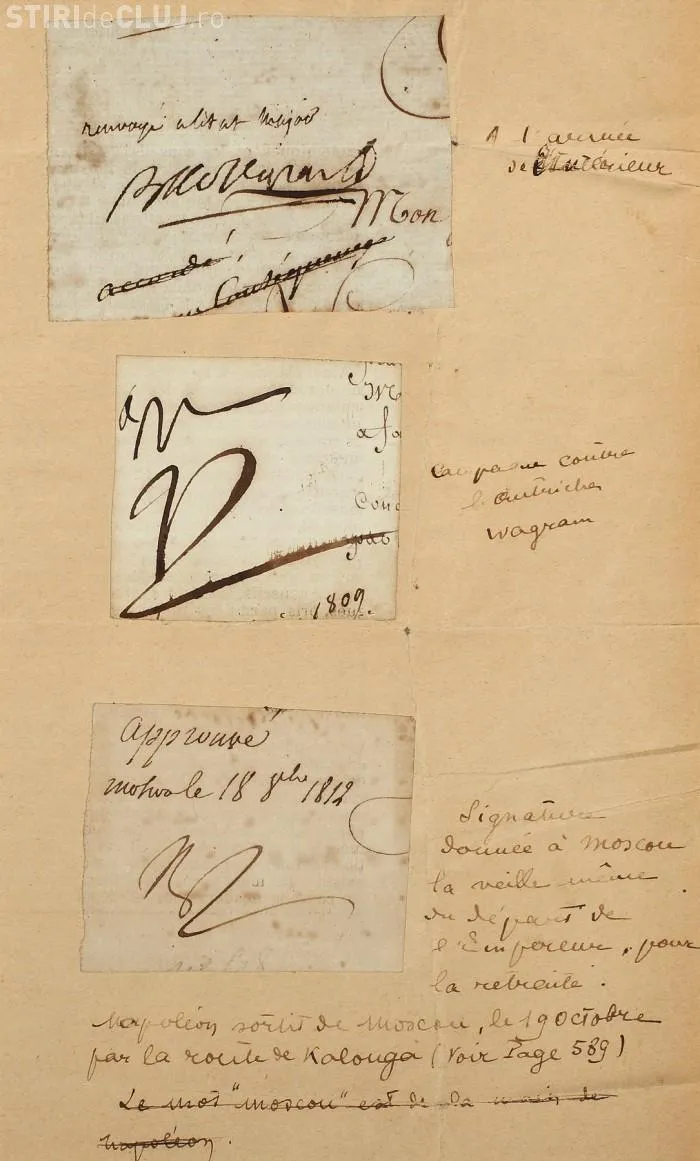 STIRIdeCLUJ.ro
renvoyé a l'état Major
Mon
accordé
en Conséquence
A l'armée
de l'Intérieur
a fa
1809.
Campagne contre
l'Autriche
Wagram
approuvé
moskou le 18 8bre 1812
Signature
donnée à Moscou
la veille même
du départ de
l'Empereur, pour
la retraite.
Napoléon sortit de Moscou, le 19 Octobre
par la route de Kalouga (Voir Page 589)
Le mot "Moscou" est de la main de
Napoléon.